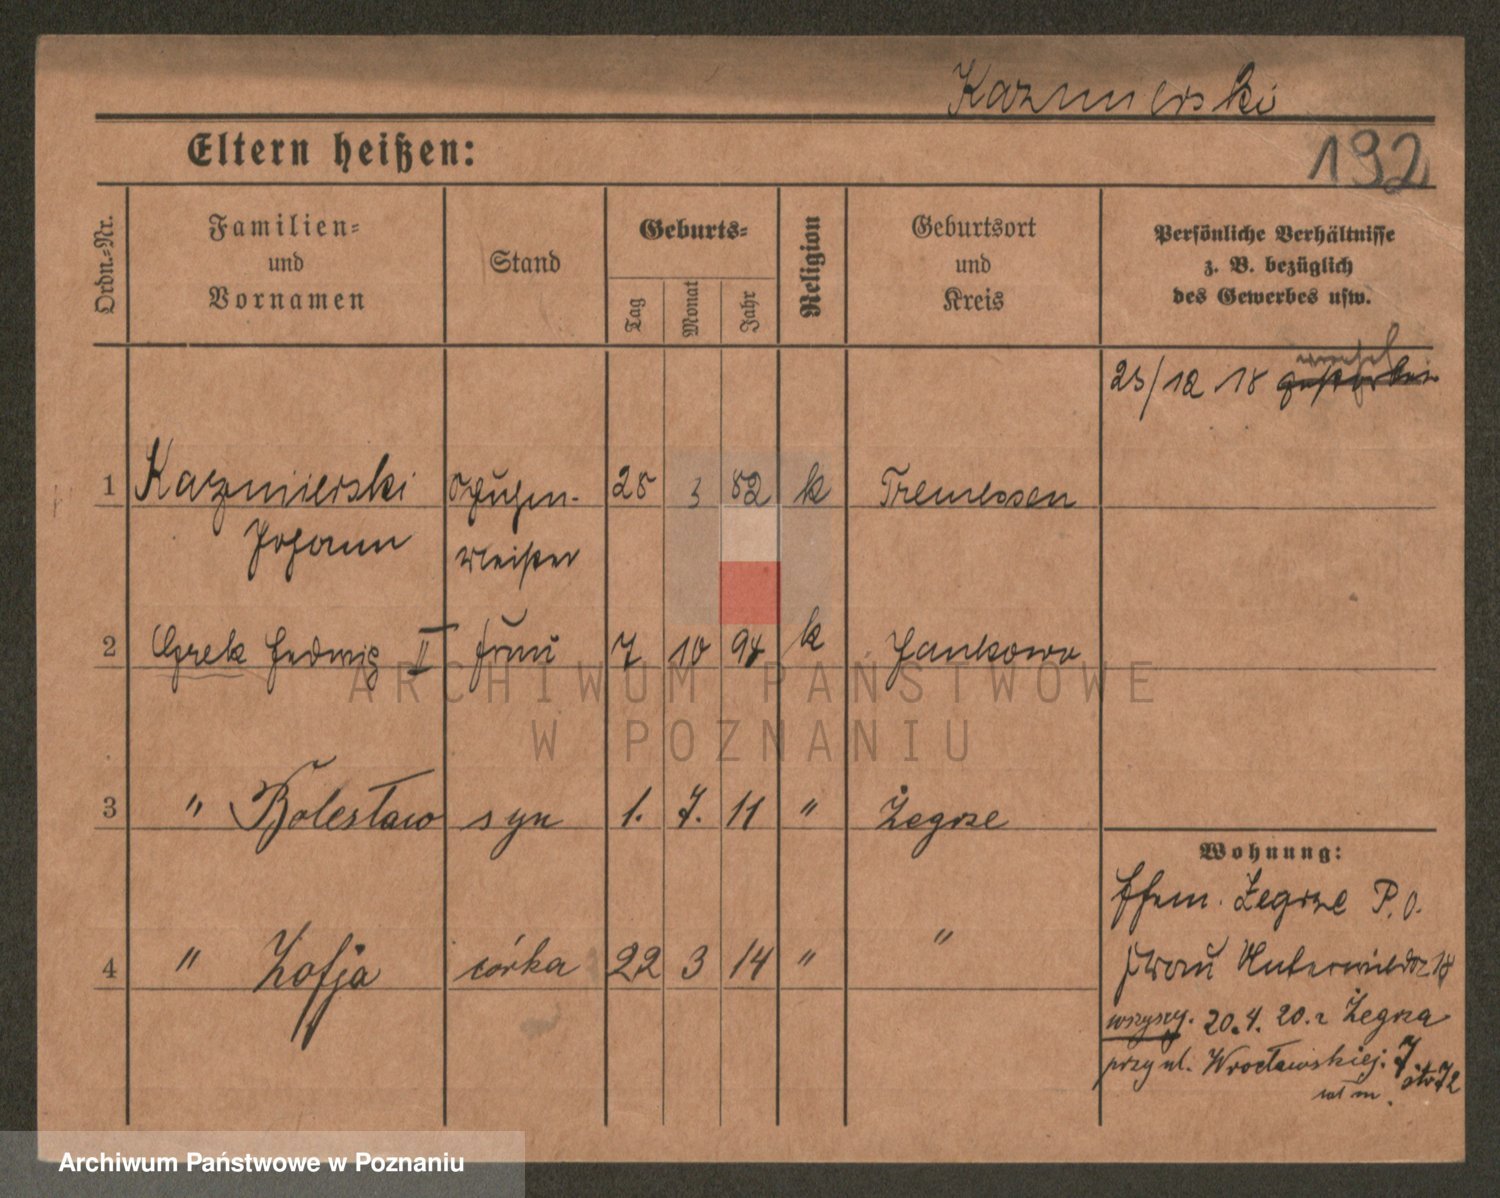 Kazmierski
Eltern heißen:
192
Ordn.-Nr.
Familien-
und
Vornamen
Stand
Geburts-
Tag
Monat
Jahr
Religion
Geburtsort
und
Kreis
Persönliche Verhältnisse
z. B. bezüglich
des Gewerbes usw.
23/12 18
1 Kazmierski 25 3 82 k Tremessen
Johann
2 Hedwig II Frau 7 10 k Jankowo
3 " Bolesław syn 1. 7. 11 " Żegrze
4 " Zofja córka 22 3 14 " "
Wohnung:
Żegrze P. O.
Frau Unterwilda 18
wszyscy. 20.4.20. z Żegrza
przy ul. Wrocławskiej 7
ARCHIWUM PAŃSTWOWE
W POZNANIU
Archiwum Państwowe w Poznaniu